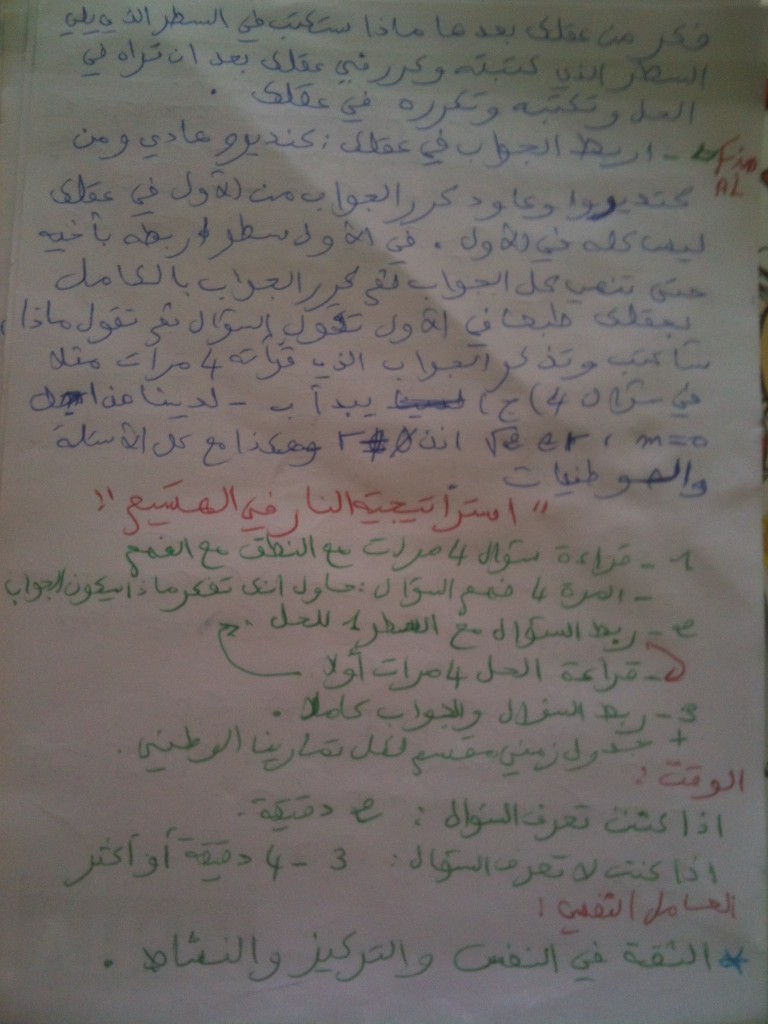 فكر من عقلك بعدها ماذا ستكتب في السطر الذي يلي
السطر الذي كتبته وكرر في عقلك بعد ان تراه في
الحل وتكتبه وتكرره في عقلك .
- اربط الجواب في عقلك : كنديرو عادي ومن
Fin
AL
كنديروا وعاود كرر الجواب من الأول في عقلك
ليس كله في الأول . في الأول سطر اربطه بأخيه
حتى تنهي كل الجواب كرر الجواب بالكامل
بعقلك طبعا في الأول تقول السؤال تقول ماذا
سأكتب وتذكر الجواب الذي قرأته 4 مرات مثلا
في سؤال 4) ج) يبدأ ب - لدينا
m=0 وهكذا مع كل الأسئلة
والوطنيات
" استراتيجية النار في الهشيم "
1 - قراءة سؤال 4 مرات مع النطق مع الفهم
- المرة 4 فهم السؤال : حاول انك تفكر ماذا سيكون الجواب
2 - ربط السؤال مع السطر 1 للحل .
- قراءة الحل 4 مرات أولا
3 - ربط السؤال والجواب كاملا .
+ جدول زمني مقسم لكل تمارينا الوطني .
الوقت :
اذا كنت تعرف السؤال : 2 دقيقة .
اذا كنت لا تعرف السؤال : 3 - 4 دقيقة أو أكثر
العامل النفسي :
* الثقة في النفس والتركيز والنشاط .